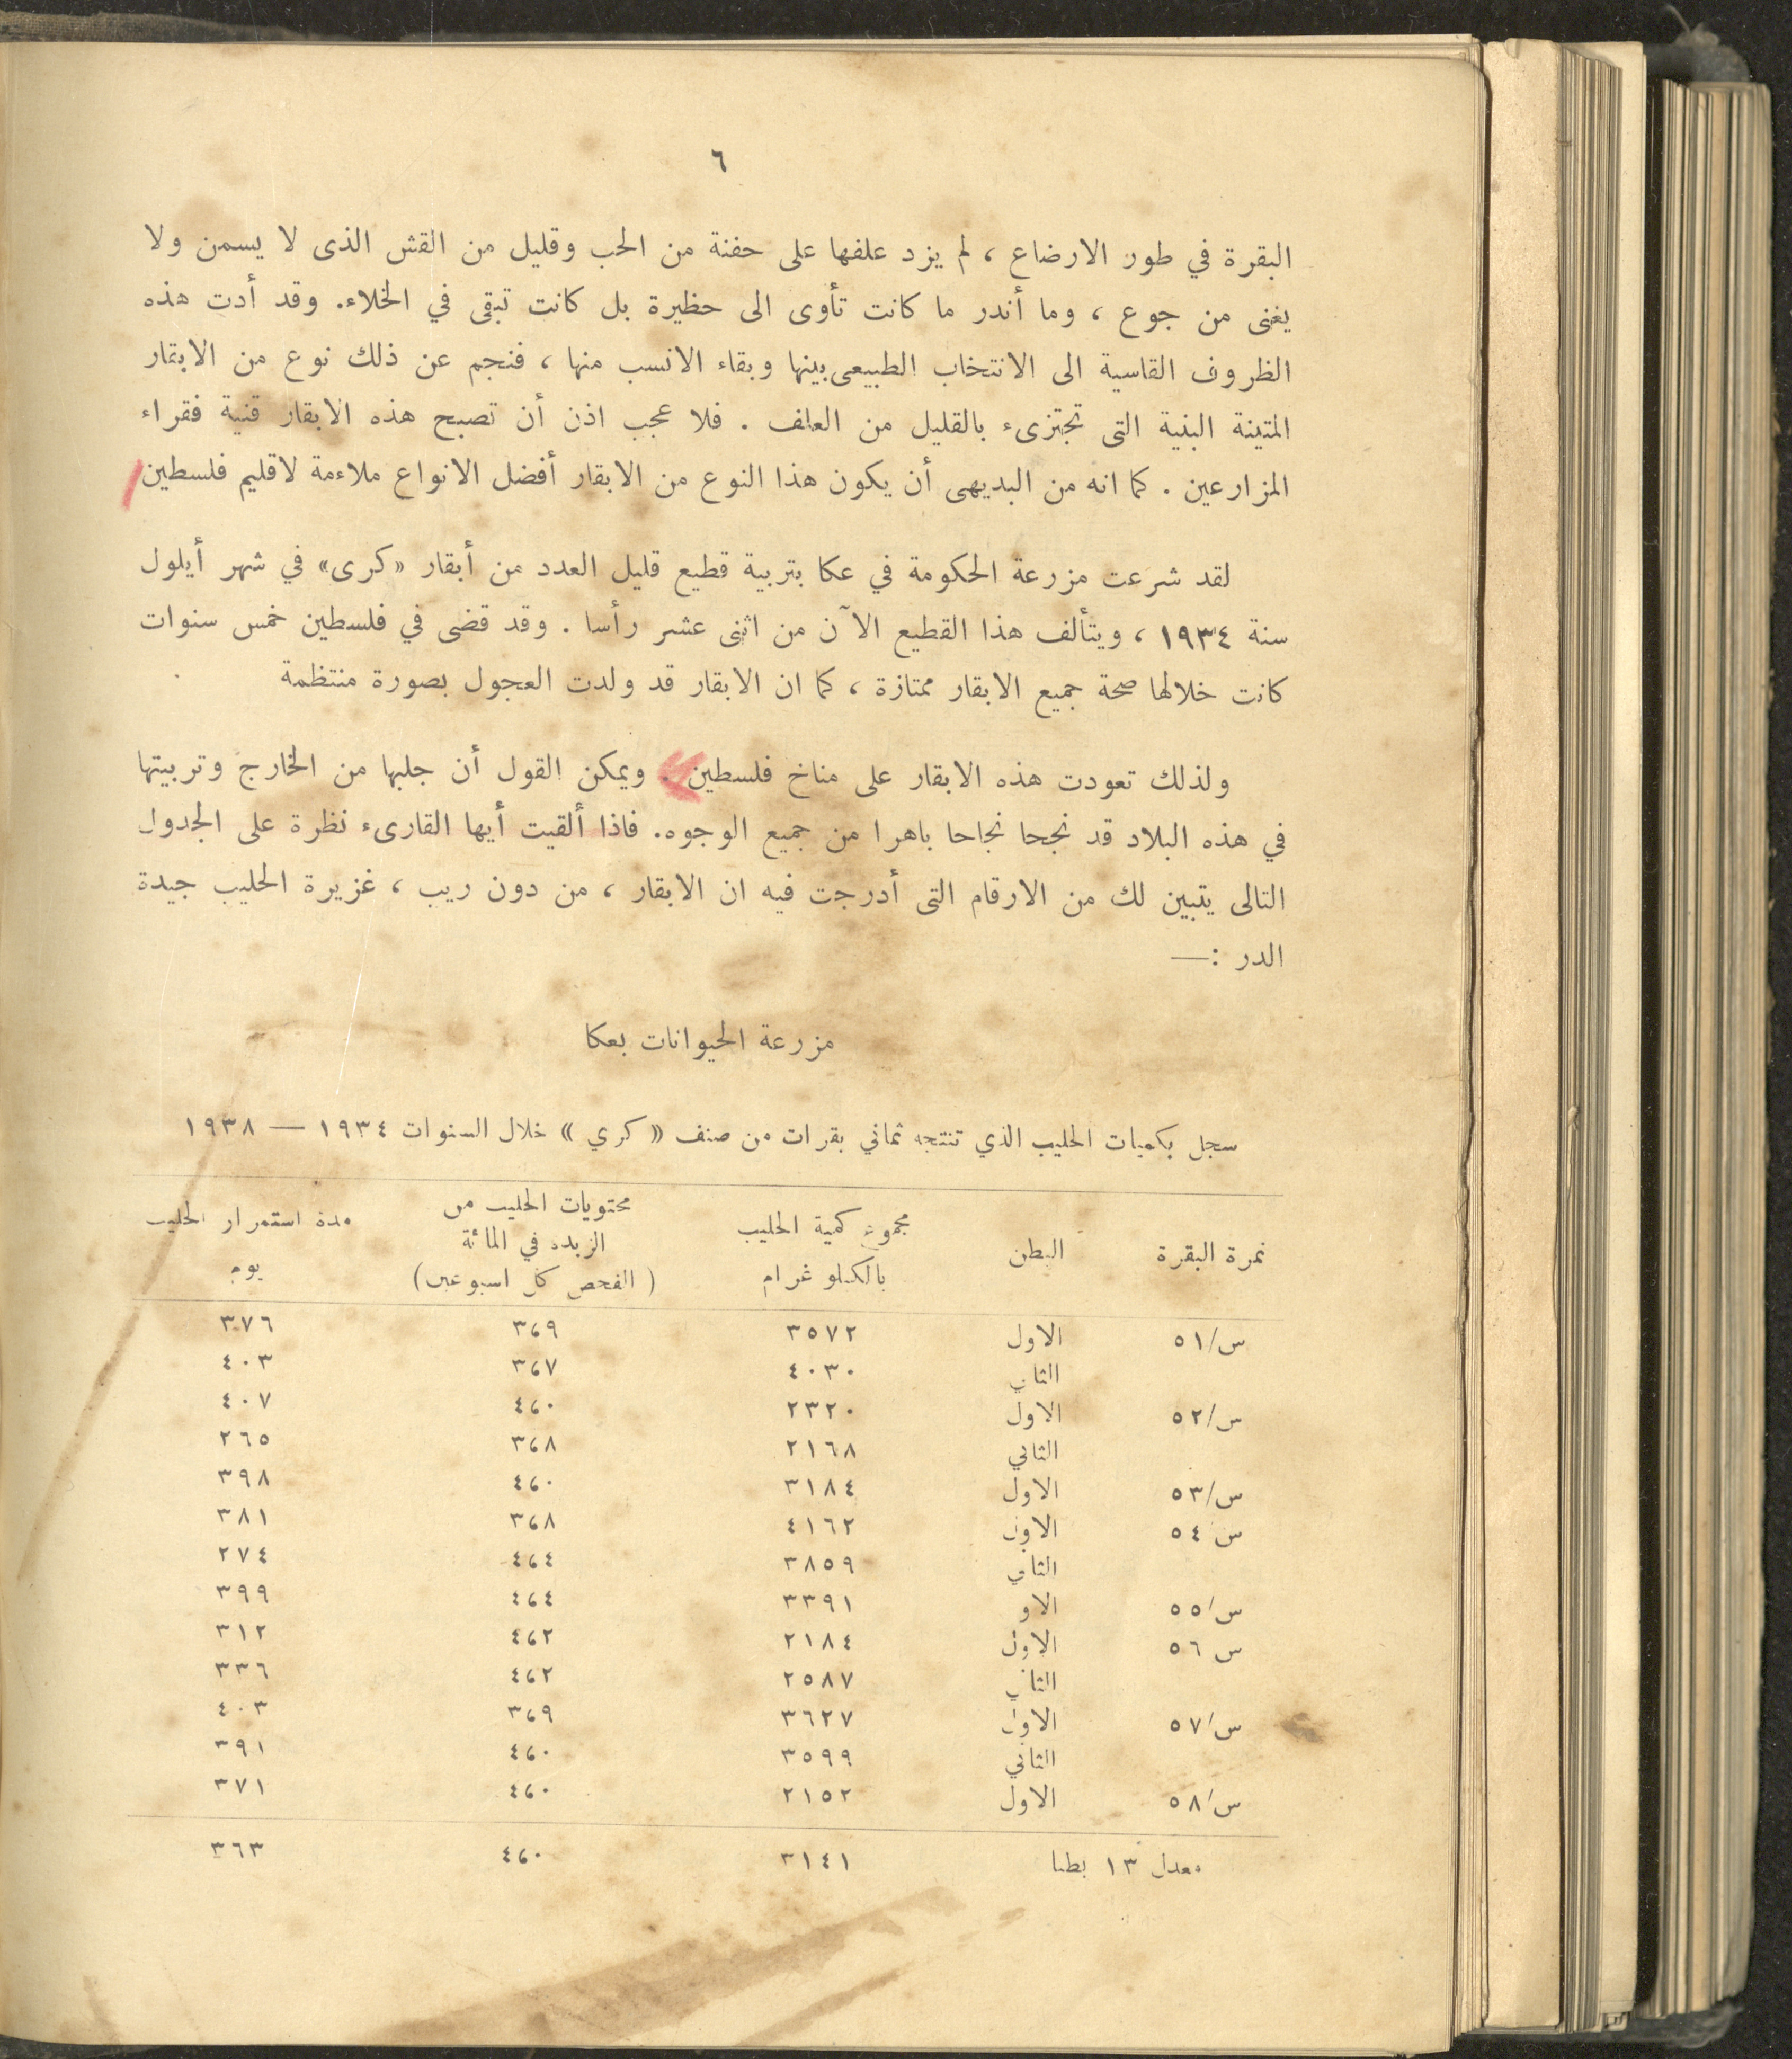 ٦
البقرة في طور الارضاع ، لم يزد علفها على حفنة من الحب وقليل من القش الذى لا يسمن ولا
يغنى من جوع ، وما أندر ما كانت تأوى الى حظيرة بل كانت تبقى في الخلاء. وقد أدت هذه
الظروف القاسية الى الانتخاب الطبيعى بينها وبقاء الانسب منها ، فنجم عن ذلك نوع من الابقار
المتينة البنية التى تجتزىء بالقليل من العلف . فلا عجب اذن أن تصبح هذه الابقار قنية فقراء
المزارعين . كما انه من البديهى أن يكون هذا النوع من الابقار أفضل الانواع ملاءمة لاقليم فلسطين
لقد شرعت مزرعة الحكومة في عكا بتربية قطيع قليل العدد من أبقار «كرى» في شهر أيلول
سنة ١٩٣٤ ، ويتألف هذا القطيع الآن من اثنى عشر رأسا . وقد قضى في فلسطين خمس سنوات
كانت خلالها صحة جميع الابقار ممتازة ، كما ان الابقار قد ولدت العجول بصورة منتظمة
ولذلك تعودت هذه الابقار على مناخ فلسطين . ويمكن القول أن جلبها من الخارج وتربيتها
في هذه البلاد قد نجحا نجاحا باهرا من جميع الوجوه. فاذا ألقيت أيها القارىء نظرة على الجدول
التالى يتبين لك من الارقام التى أدرجت فيه ان الابقار ، من دون ريب ، غزيرة الحليب جيدة
الدر :—
مزرعة الحيوانات بعكا
سجل بكميات الحليب الذي تنتجه ثماني بقرات من صنف « كري » خلال السنوات ١٩٣٤ — ١٩٣٨
نمرة البقرة البطن مجموع كمية الحليب بالكيلو غرام محتويات الحليب من الزبده في المائة ( الفحص كل اسبوعين ) مدة استمرار الحليب يوم
س/٥١ الاول ٣٥٧٢ ٣،٩ ٣٧٦
الثاني ٤٠٣٠ ٣،٧ ٤٠٣
س/٥٢ الاول ٢٣٢٠ ٤،٠ ٤٠٧
الثاني ٢١٦٨ ٣،٨ ٢٦٥
س/٥٣ الاول ٣١٨٤ ٤،٠ ٣٩٨
س ٥٤ الاول ٤١٦٢ ٣،٨ ٣٨١
الثاني ٣٨٥٩ ٤،٤ ٢٧٤
س/٥٥ الاو ٣٣٩١ ٤،٤ ٣٩٩
س ٥٦ الاول ٢١٨٤ ٤،٢ ٣١٢
الثاني ٢٥٨٧ ٤،٢ ٣٣٦
س/٥٧ الاول ٣٦٢٧ ٣،٩ ٤٠٣
الثاني ٣٥٩٩ ٤،٠ ٣٩١
س/٥٨ الاول ٢١٥٢ ٤،٠ ٣٧١
معدل ١٣ بطنا ٣١٤١ ٤،٠ ٣٦٣